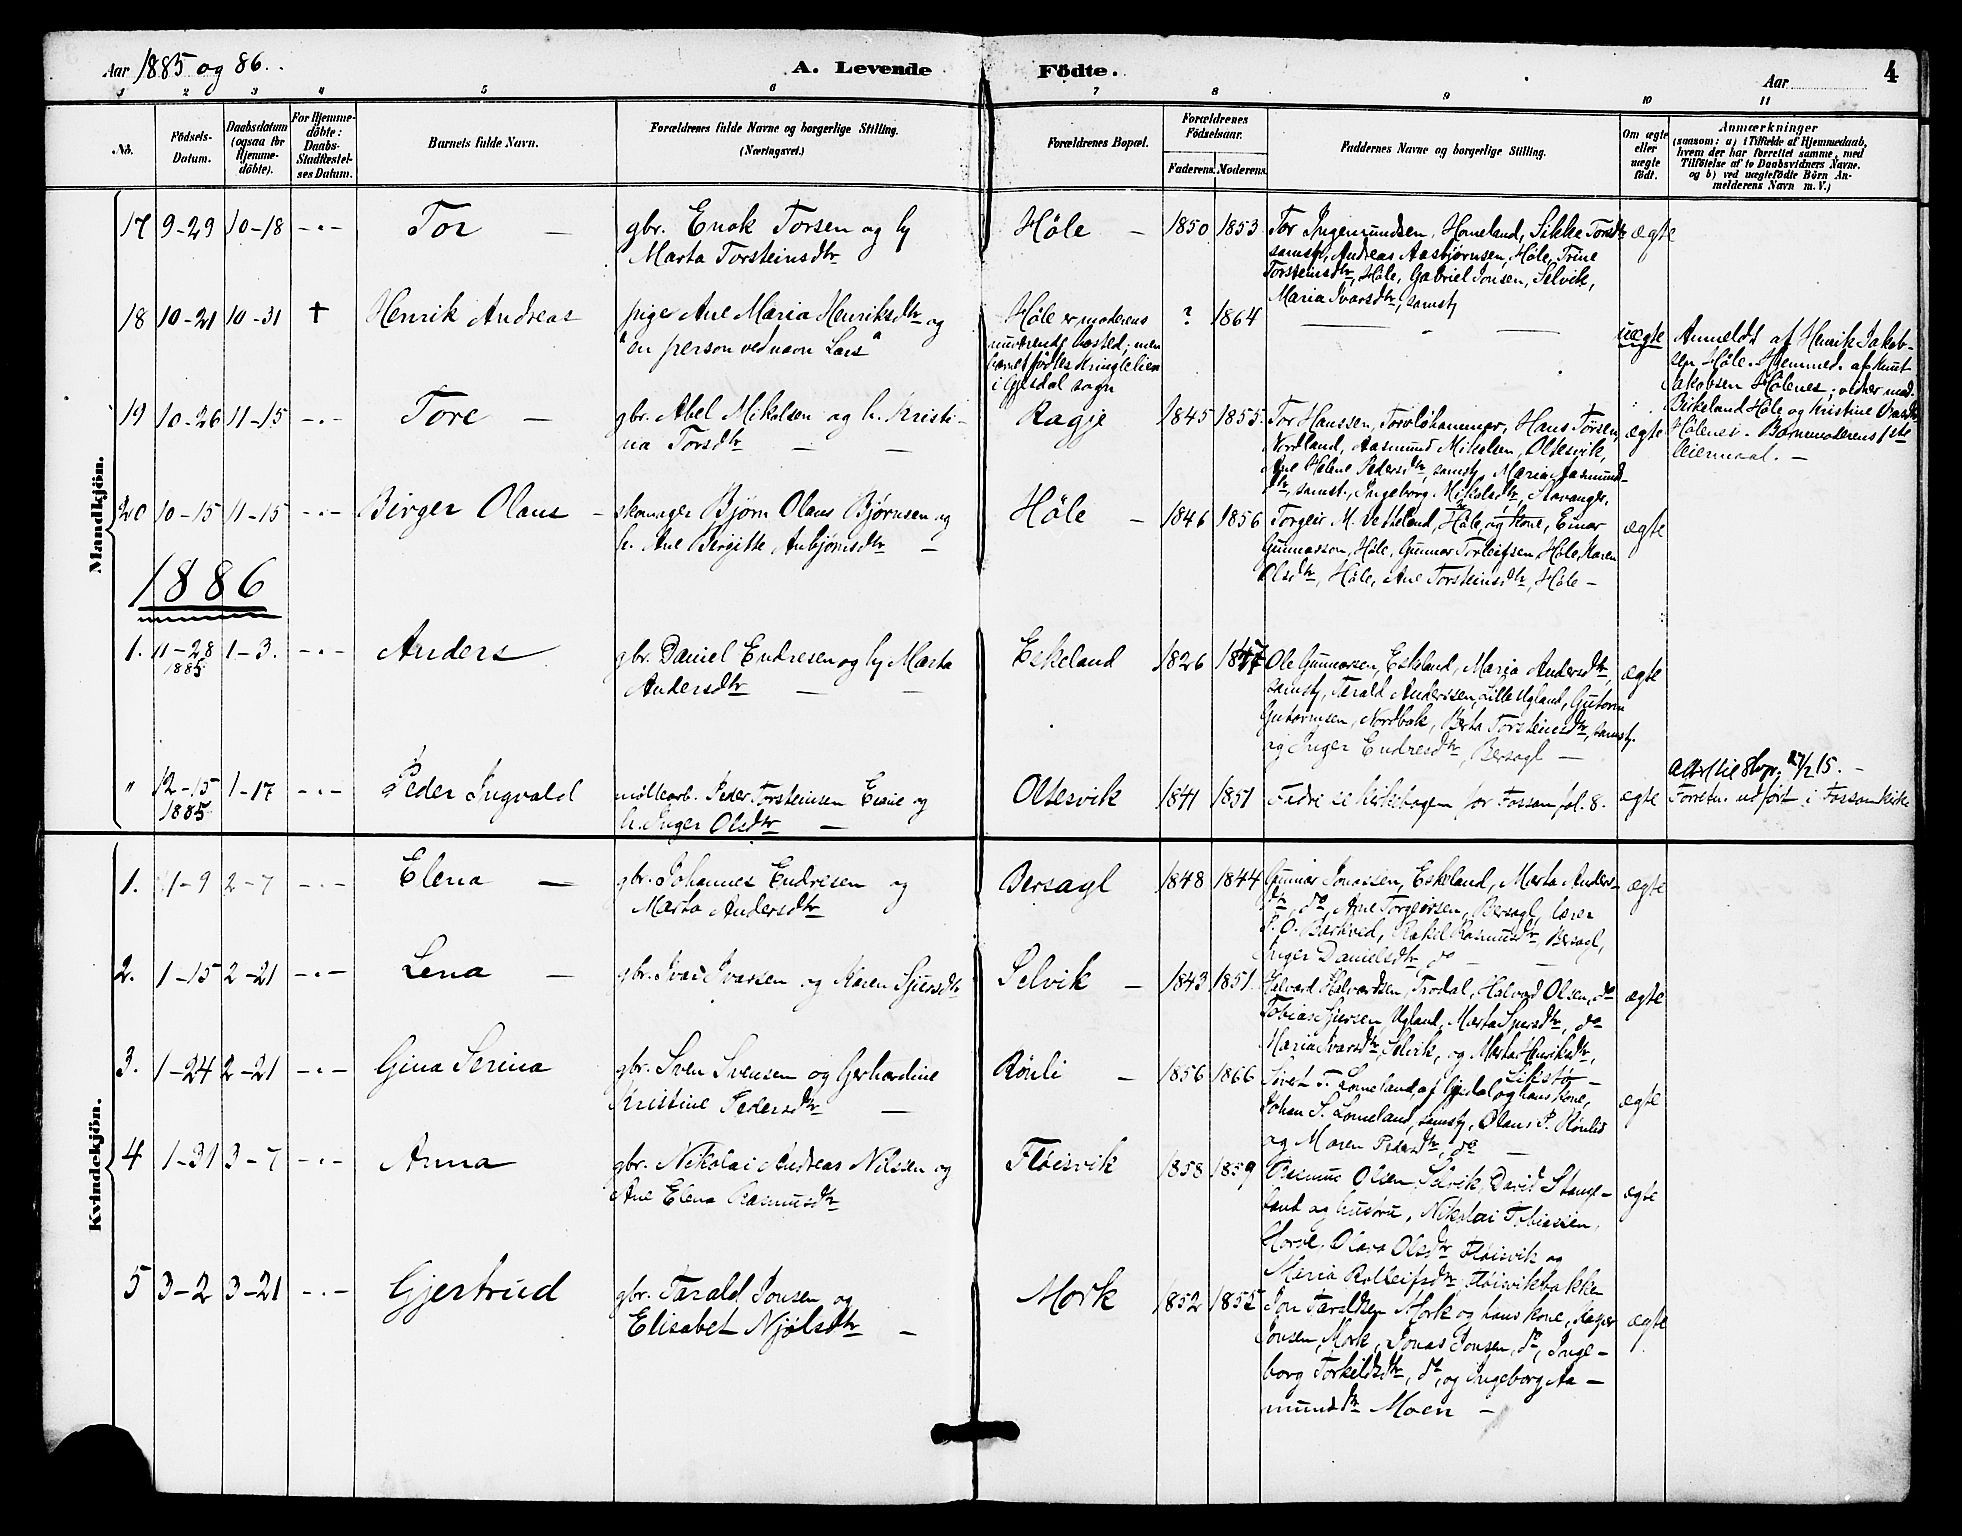 Aar 1885 og 86.
A. Levende Födte.
Aar
4
1 2 3 4 5 6 7 8 9 10 11
No.
Födsels-Datum.
Daabsdatum (ogsaa for Hjemme-döbte).
For Hjemme-döbte: Daabs-Stadfæstel-ses Datum.
Barnets fulde Navn.
Forældrenes fulde Navne og borgerlige Stilling.
(Næringsvei.)
Forældrenes Bopæl.
Forældrenes Födselsaar.
Faderens. Moderens.
Faddernes Navne og borgerlige Stilling.
Om ægte eller uægte født.
Anmærkninger
(saasom: a) i Tilfælde af Hjemmedaab,
hvem der har forrettet samme, med
Tilföielse af to Daabsvidners Navne.
og b) ved uægtefödte Börn An-
melderens Navn m. V.)
Mandkjön.
17 9-29 10-18 -"- Tor —
gbr. Enok Torsen og h
Marta Torsteinsdtr
Höle — 1850 1853
Tor Ingemundsen, Homeland, Sikke Torsdtr
samst, Andreas Aasbjørnsen, Höle, Trine
Torsteinsdtr, Höle, Gabriel Jonsen, Selvik,
Maria Ivarsdtr, samst
ægte
18 10-21 10-31 † Henrik Andreas
pige Ane Maria Henriksdtr og
"en person ved navn Lars"
Höle er moderens
nuværende bosted; men
barnet födtes Kringlelien
i Gjesdal sogn
? 1864
— " —
uægte
Anmeldt af Henrik Jakob-
sen Höle. Hjemmed. af Knut
Jakobsen Hölenes; vidner mad.
Birkeland Höle og Kristine
Hölenes. Barnemoderens 1ste
leiermaal. —
19 10-26 11-15 -"- Tore —
gbr. Abel Mikalsen og h. Kristi-
na Torsdtr — —
Ragje 1845 1855
Tor Hanssen, Hans Torsen,
Nordland, Aasmund Mikalsen, Oltesvik,
Ane Helene Pedersdtr, samst, Maria Aasmunds-
dtr, samst, Ingeborg Mikalsdtr, Stavanger.
ægte
20 10-15 11-15 -"- Birger Olaus —
skomager Bjørn Olaus Bjørnsen og
h. Ane Bergitte Asbjørnsdtr —
Höle — 1846 1856
Torgeir M. Vetteland, Höle, og kone, Einar
Gunnarsson, Höle, Gunnar Torleifsen, Höle, Karen
Olsdtr, Höle, Ane Torsteinsdtr, Höle —
ægte
1886
1. 11-28 1885 1-3. -"- Anders
gbr. Daniel Endresen og h Marta
Andersdtr — —
Eskeland 1826 1847
Ole Gunnarsen, Eskeland, Maria Andersdtr,
samst, Tarald Anderssen, Lille Ugland, Gutorm
Gutormsen, Nordbok, Berta Torsteinsdtr, samst.
og Inger Endresdtr, Bersagl —
ægte
" 12-15 1885 1-17 -"- Peder Ingvald
möllearb. Peder Torsteinsen Eiane og
h. Inger Olsdtr —
Oltesvik 1841 1851
Fadre se kirkebogen for Fossan fol. 8.
ægte
Attest til 27/2 15. —
Forretn. udført i Fossan kirke
Kvindekjön.
1. 1-9 2-7 -"- Elena —
gbr. Johannes Endresen og
Marta Andersdtr
Bersagl 1848 1844
Gunnar Jonassen, Eskeland, Marta Anders-
dtr, do, Arne Torgeirsen, Bersagl, lærer
P. O. Barkved, Rakel Rasmusdtr, Bersagl,
Inger Danielsdtr do —
ægte
2. 1-15 2-21 -"- Lena —
gbr. Ivar Ivarsen og Karen Sjursdtr
Selvik — 1843 1851
Halvard Halvardsen, Trodal, Halvard Olsen, do
Tobias Sjursen, Ugland, Marta Sjursdtr, do
Maria Ivarsdtr, Selvik, og Marta Henriksdtr,
Likstø —
ægte
3. 1-24 2-21 -"- Gina Serina
gbr. Sven Svensen og Gerhardine
Kristine Pedersdtr —
Rönli — 1856 1866
Sivert T. Lomeland, af Gjesdal og hans kone,
Johan S. Lomeland, samst, Olaus P. Rönlid
og Maren Pedersdtr, do —
ægte
4 1-31 3-7 -"- Anna
gbr. Nikolai Andreas Nilsen og
Ane Elena Rasmusdtr
Flöisvik 1858 1859
Rasmus Olsen, Selvik, David Stange-
land og hustru, Nikolai Tobiassen
Horve, Olava Olsdtr Flöisvik og
Maria Rolleifsdtr, Flöisvikbakke
ægte
5 3-2 3-21 -"- Gjertrud
gbr. Tarald Jonsen og
Elisabet Njølsdtr —
Mork 1852 1855
Jon Taraldsen Mork og hans kone, Kasper
Jonsen, Mork, Jonas Jonsen, do, Inge-
borg Torkildsdtr, do, og Ingeborg Aa-
mundsdtr Moen —
ægte